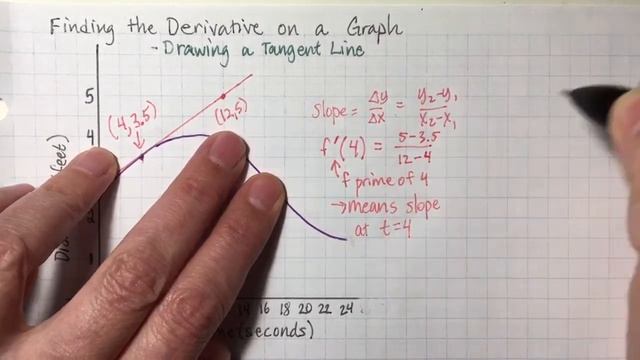 Finding the Derivative on a Graph
- Drawing a Tangent Line
5
(4,3.5)
(12,5)
slope = Δy/Δx = y₂-y₁/x₂-x₁
4
f'(4) = 5-3.5/12-4
feet)
f prime of 4
→ means slope
at t=4
2
1
14 16 18 20 22 24
(seconds)